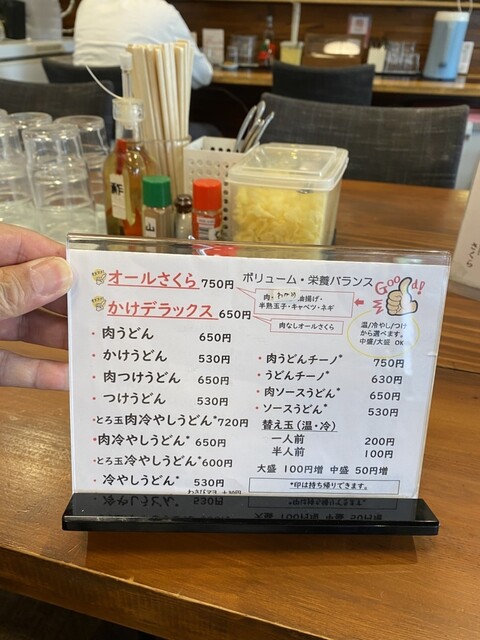 オールさくら 750円
ボリューム・栄養バランス
Good!
かけデラックス 650円
肉・ 油揚げ・
半熟玉子・キャベツ・ネギ
肉なしオールさくら
温/冷やし/つけ
から選べます。
中盛/大盛 OK
・肉うどん 650円
・かけうどん 530円
・肉つけうどん 650円
・つけうどん 530円
・とろ玉肉冷やしうどん* 720円
・肉冷やしうどん* 650円
・とろ玉冷やしうどん* 600円
・冷やしうどん* 530円
わさびマヨ +30円
・肉うどんチーノ* 750円
・うどんチーノ* 630円
・肉ソースうどん* 650円
・ソースうどん* 530円
替え玉(温・冷)
一人前 200円
半人前 100円
大盛 100円増 中盛 50円増
*印は持ち帰りできます。
酢
山